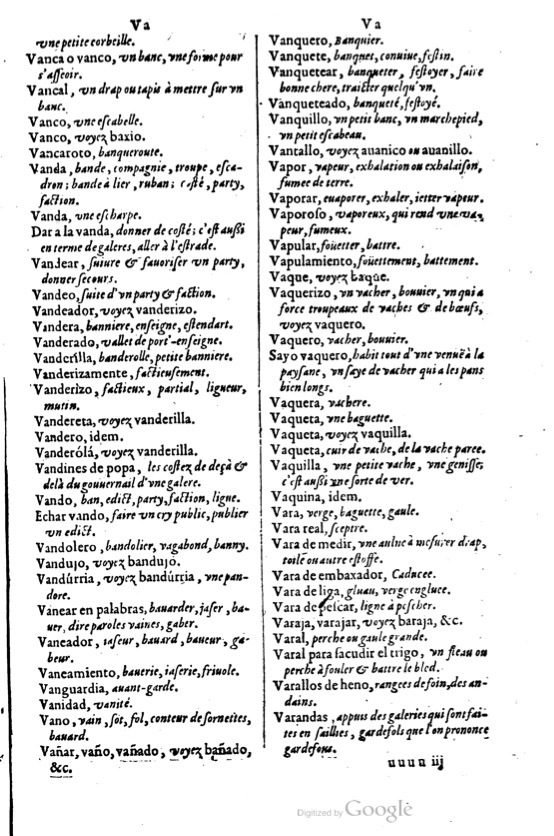 Va
vne petite corbeille.
Vanca o vanco, vn banc, vne forme pour
s'asseoir.
Vancal, vn drap ou tapis à mettre sur vn
banc.
Vanco, vne escabelle.
Vanco, voyez baxio.
Vancaroto, banqueroute.
Vanda, bande, compagnie, troupe, esca-
dron; bande à lier, ruban; costé, party,
faction.
Vanda, vne escharpe.
Dar a la vanda, donner de costé; c'est aussi
en terme de galeres, aller à l'estrade.
Vandear, suiure & fauoriser vn party,
donner secours.
Vandeo, suite d'vn party & faction.
Vandeador, voyez vanderizo.
Vandera, banniere, enseigne, estendart.
Vanderado, vallet de port'-enseigne.
Vanderilla, banderolle, petite banniere.
Vanderizamente, factieusement.
Vanderizo, factieux, partial, ligueur,
mutin.
Vandereta, voyez vanderilla.
Vandero, idem.
Vanderóla, voyez vanderilla.
Vandines de popa, les costez de deçà &
delà du gouuernail d'vne galere.
Vando, ban, edict, party, faction, ligue.
Echar vando, faire vn cry public, publier
vn edict.
Vandolero, bandolier, vagabond, banny.
Vandujo, voyez bandujo.
Vandúrria, voyez bandúrria, vne pan-
dore.
Vanear en palabras, bauarder, jaser, ba-
uer, dire paroles vaines, gaber.
Vaneador, iaseur, bauard, baueur, ga-
beur.
Vaneamiento, bauerie, iaserie, friuole.
Vanguardia, auant-garde.
Vanidad, vanité.
Vano, vain, sot, fol, conteur de sornettes,
bauard.
Vañar, vaño, vañado, voyez bañado,
&c.
Va
Vanquero, Banquier.
Vanquete, banquet, conuiue, festin.
Vanquetear, banqueter, festoyer, faire
bonne chere, traicter quelqu'vn.
Vanqueteado, banqueté, festoyé.
Vanquillo, vn petit banc, vn marchepied,
vn petit escabeau.
Vantallo, voyez auanico ou auanillo.
Vapor, vapeur, exhalation ou exhalaison,
fumee de terre.
Vaporar, euaporer, exhaler, ietter vapeur.
Vaporoso, vaporeux, qui rend vne va-
peur, fumeux.
Vapular, foüetter, battre.
Vapulamiento, foüettement, battement.
Vaque, voyez baque.
Vaquerizo, vn vacher, bouuier, vn qui a
force troupeaux de vaches & de bœufs,
voyez vaquero.
Vaquero, vacher, bouuier.
Sayo vaquero, habit tout d'vne venuë à la
paysane, vn saye de vacher qui a les pans
bien longs.
Vaquera, vachere.
Vaqueta, vne baguette.
Vaqueta, voyez vaquilla.
Vaqueta, cuir de vache, de la vache paree.
Vaquilla, vne petite vache, vne genisse;
c'est aussi vne sorte de ver.
Vaquina, idem.
Vara, verge, baguette, gaule.
Vara real, sceptre.
Vara de medir, vne aulne à mesurer drap,
toile ou autre estoffe.
Vara de embaxador, Caducee.
Vara de liga, gluau, verge engluee.
Vara de pescar, ligne à pescher.
Varaja, varajar, voyez baraja, &c.
Varal, perche ou gaule grande.
Varal para sacudir el trigo, vn fleau ou
perche à fouler & battre le bled.
Varallos de heno, rangees de foin, des an-
dains.
Varandas, appuis des galeries qui sont fai-
tes en saillies, gardefols que l'on prononce
gardefous.
uuuu iij
Digitized by Google